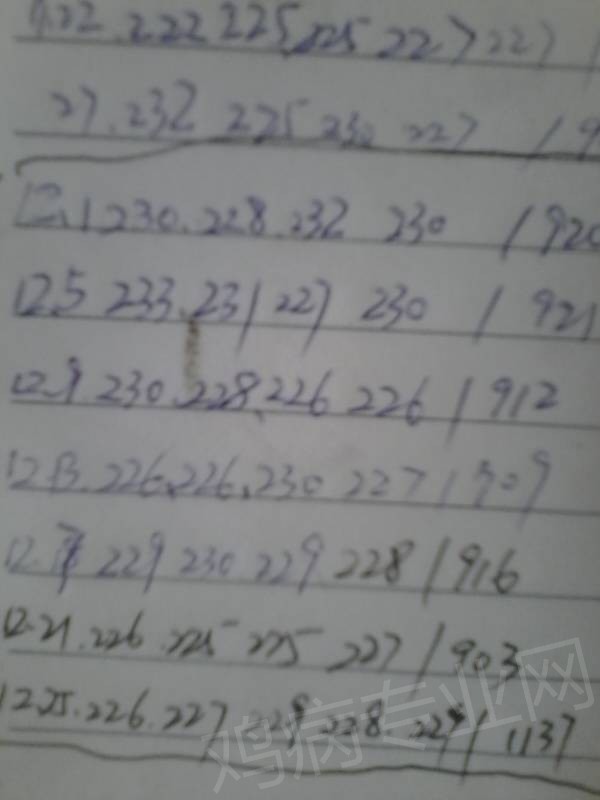 222 225 225 227 227
27. 232 225 230 227 / 9
12.1 230. 228. 232 230 / 920
12.5 233. 231 227 230 / 921
12.9 230. 228. 226 226 / 912
12.13 226. 226. 230 227 / 909
229 230 229 228 / 916
12.21. 226 225 225 227 / 903
12.25. 226. 227 228. / 1137
鸡病专业网